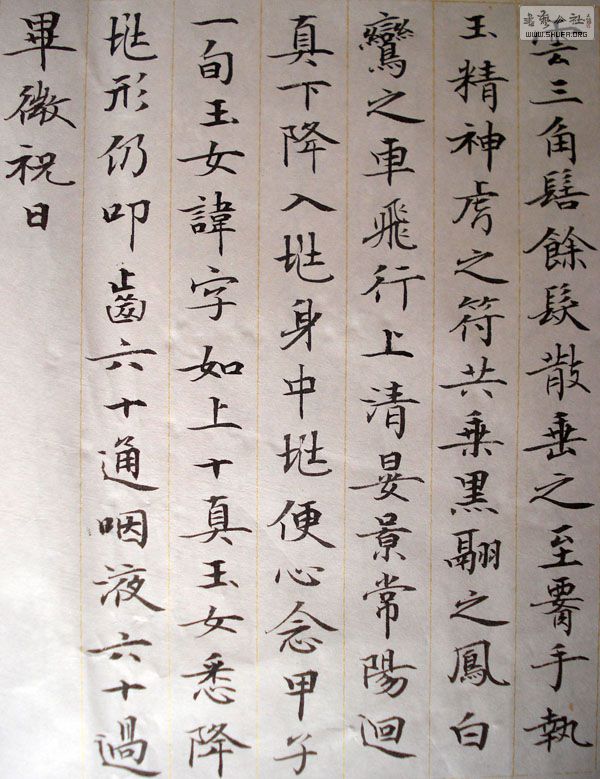 書藝公社
WWW.SHUFA.ORG
雲三角髻餘髮散垂之至腰手執
玉精神虎之符共乗黒翮之鳳白
鸞之車飛行上清晏景常陽迴
真下降入兆身中兆便心念甲子
一旬玉女諱字如上十真玉女悉降
兆形仍叩齒六十通咽液六十過
畢微祝曰